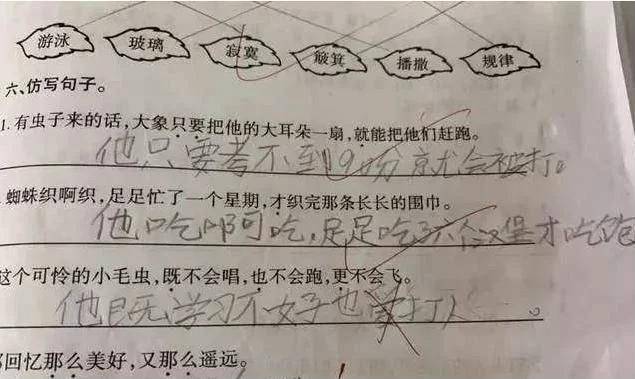 游泳 玻璃 寂寞 簸箕 播撒 规律
六、仿写句子。
1.有虫子来的话,大象只要把他的大耳朵一扇,就能把他们赶跑。
他只要考不到9份就会被打。
蜘蛛织啊织,足足忙了一个星期,才织完那条长长的围巾。
他吃啊吃,足足吃了六个汉堡才吃饱
这个可怜的小毛虫,既不会唱,也不会跑,更不会飞。
他既学习不好也打人。
回忆那么美好,又那么遥远。